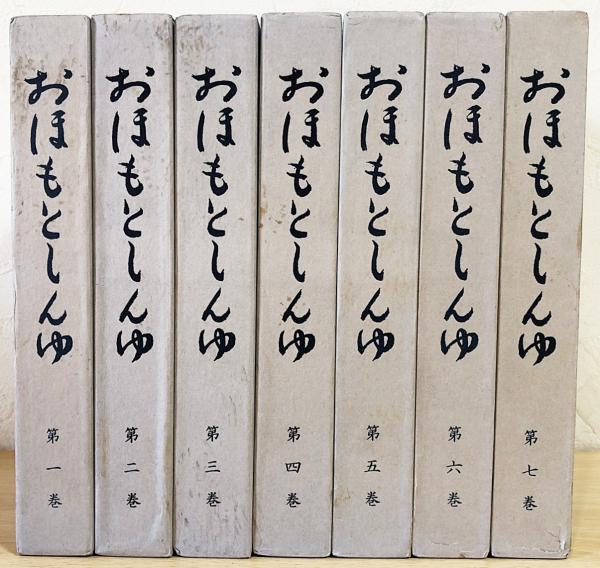 おほもとしんゆ
第一巻
おほもとしんゆ
第二巻
おほもとしんゆ
第三巻
おほもとしんゆ
第四巻
おほもとしんゆ
第五巻
おほもとしんゆ
第六巻
おほもとしんゆ
第七巻